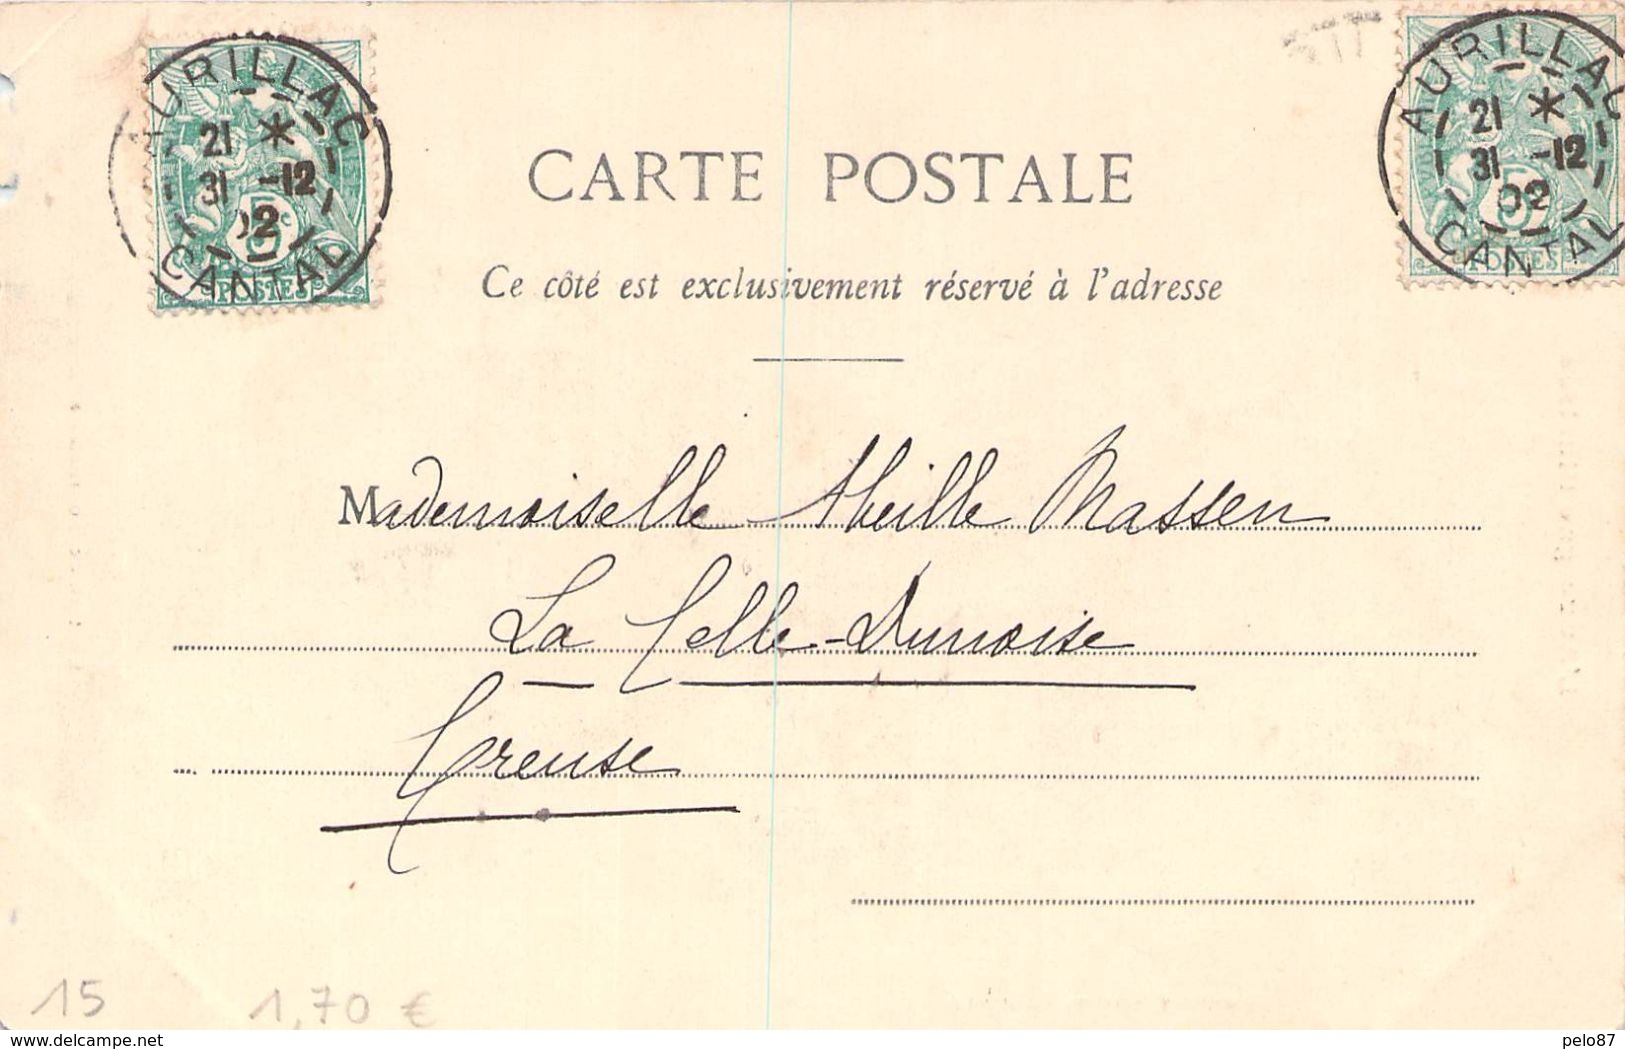 AURILLAC
21 *
31 -12
02
CANTAL
5c
POSTES
AURILLAC
21 *
31 -12
02
CANTAL
5
POSTES
CARTE POSTALE
Ce côté est exclusivement réservé à l'adresse
Mademoiselle Abeille Massen
La Celle-Dunoise
Creuse
15 1,70 €
www.delcampe.net
pelo87